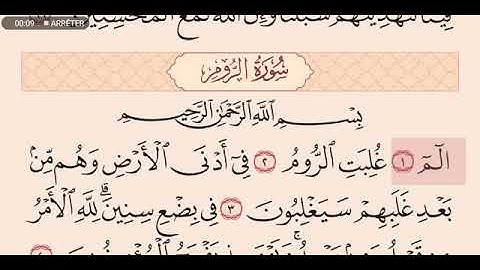 00:09 ■ ARRÊTER
فِينَا لَنَهْدِيَنَّهُمْ سُبُلَنَا وَإِنَّ اللَّهَ لَمَعَ الْمُحْسِنِينَ
سُورَةُ الرُّومِ
بِسْمِ اللَّهِ الرَّحْمَٰنِ الرَّحِيمِ
الٓمٓ ١ غُلِبَتِ ٱلرُّومُ ٢ فِىٓ أَدْنَى ٱلْأَرْضِ وَهُم مِّنۢ
بَعْدِ غَلَبِهِمْ سَيَغْلِبُونَ ٣ فِى بِضْعِ سِنِينَ ۗ لِلَّهِ ٱلْأَمْرُ